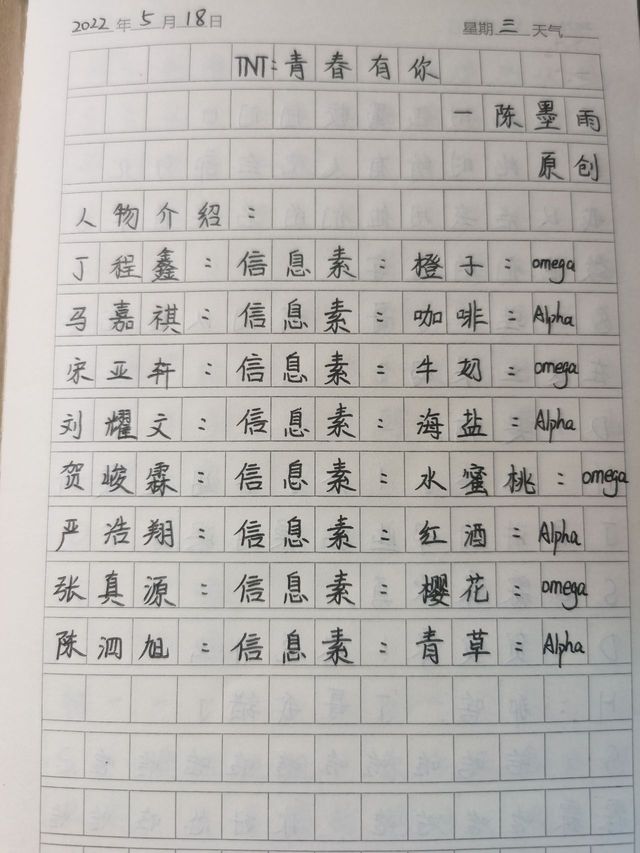 2022年5月18日 星期三 天气
TNT:青春有你
一陈墨雨
原创
人物介绍:
丁程鑫:信息素:橙子:omega
马嘉祺:信息素:咖啡:Alpha
宋亚轩:信息素:牛奶:omega
刘耀文:信息素:海盐:Alpha
贺峻霖:信息素:水蜜桃:omega
严浩翔:信息素:红酒:Alpha
张真源:信息素:樱花:omega
陈泗旭:信息素:青草:Alpha